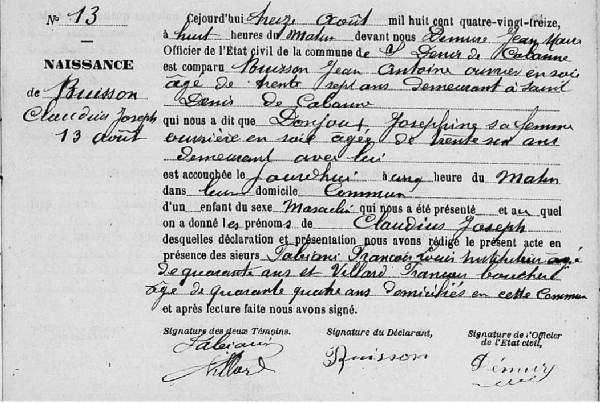 No 13
NAISSANCE
de Buisson
Claudius Joseph
13 août
Cejourd'hui treize août mil huit cent quatre-vingt-treize,
à huit heures du Matin devant nous Demure Jean Marie
Officier de l'Etat civil de la commune de St Denis de Cabanne
est comparu Buisson Jean Antoine ouvrier en soie
âgé de trente sept ans demeurant à Saint
Denis de Cabanne
qui nous a dit que Donjoux Josephine sa femme
ouvrière en soie agée de trente six ans
demeurant avec lui
est accouchée le jourd'hui à cinq heure du Matin
dans leur domicile Commun
d'un enfant du sexe Masculin qui nous a été présenté et au quel
on a donné les prénoms de Claudius Joseph
desquelles déclaration et présentation nous avons rédigé le présent acte en
présence des sieurs Fabiani François Louis instituteur agé
de quarante ans et Villard François boucher
âgé de quarante quatre ans domiciliés en cette Commun
et après lecture faite nous avons signé.
Signature des deux Témoins.
Signature du Déclarant,
Signature de l'Officier
de l'Etat civil,
Fabiani
Villard
Buisson
Démure